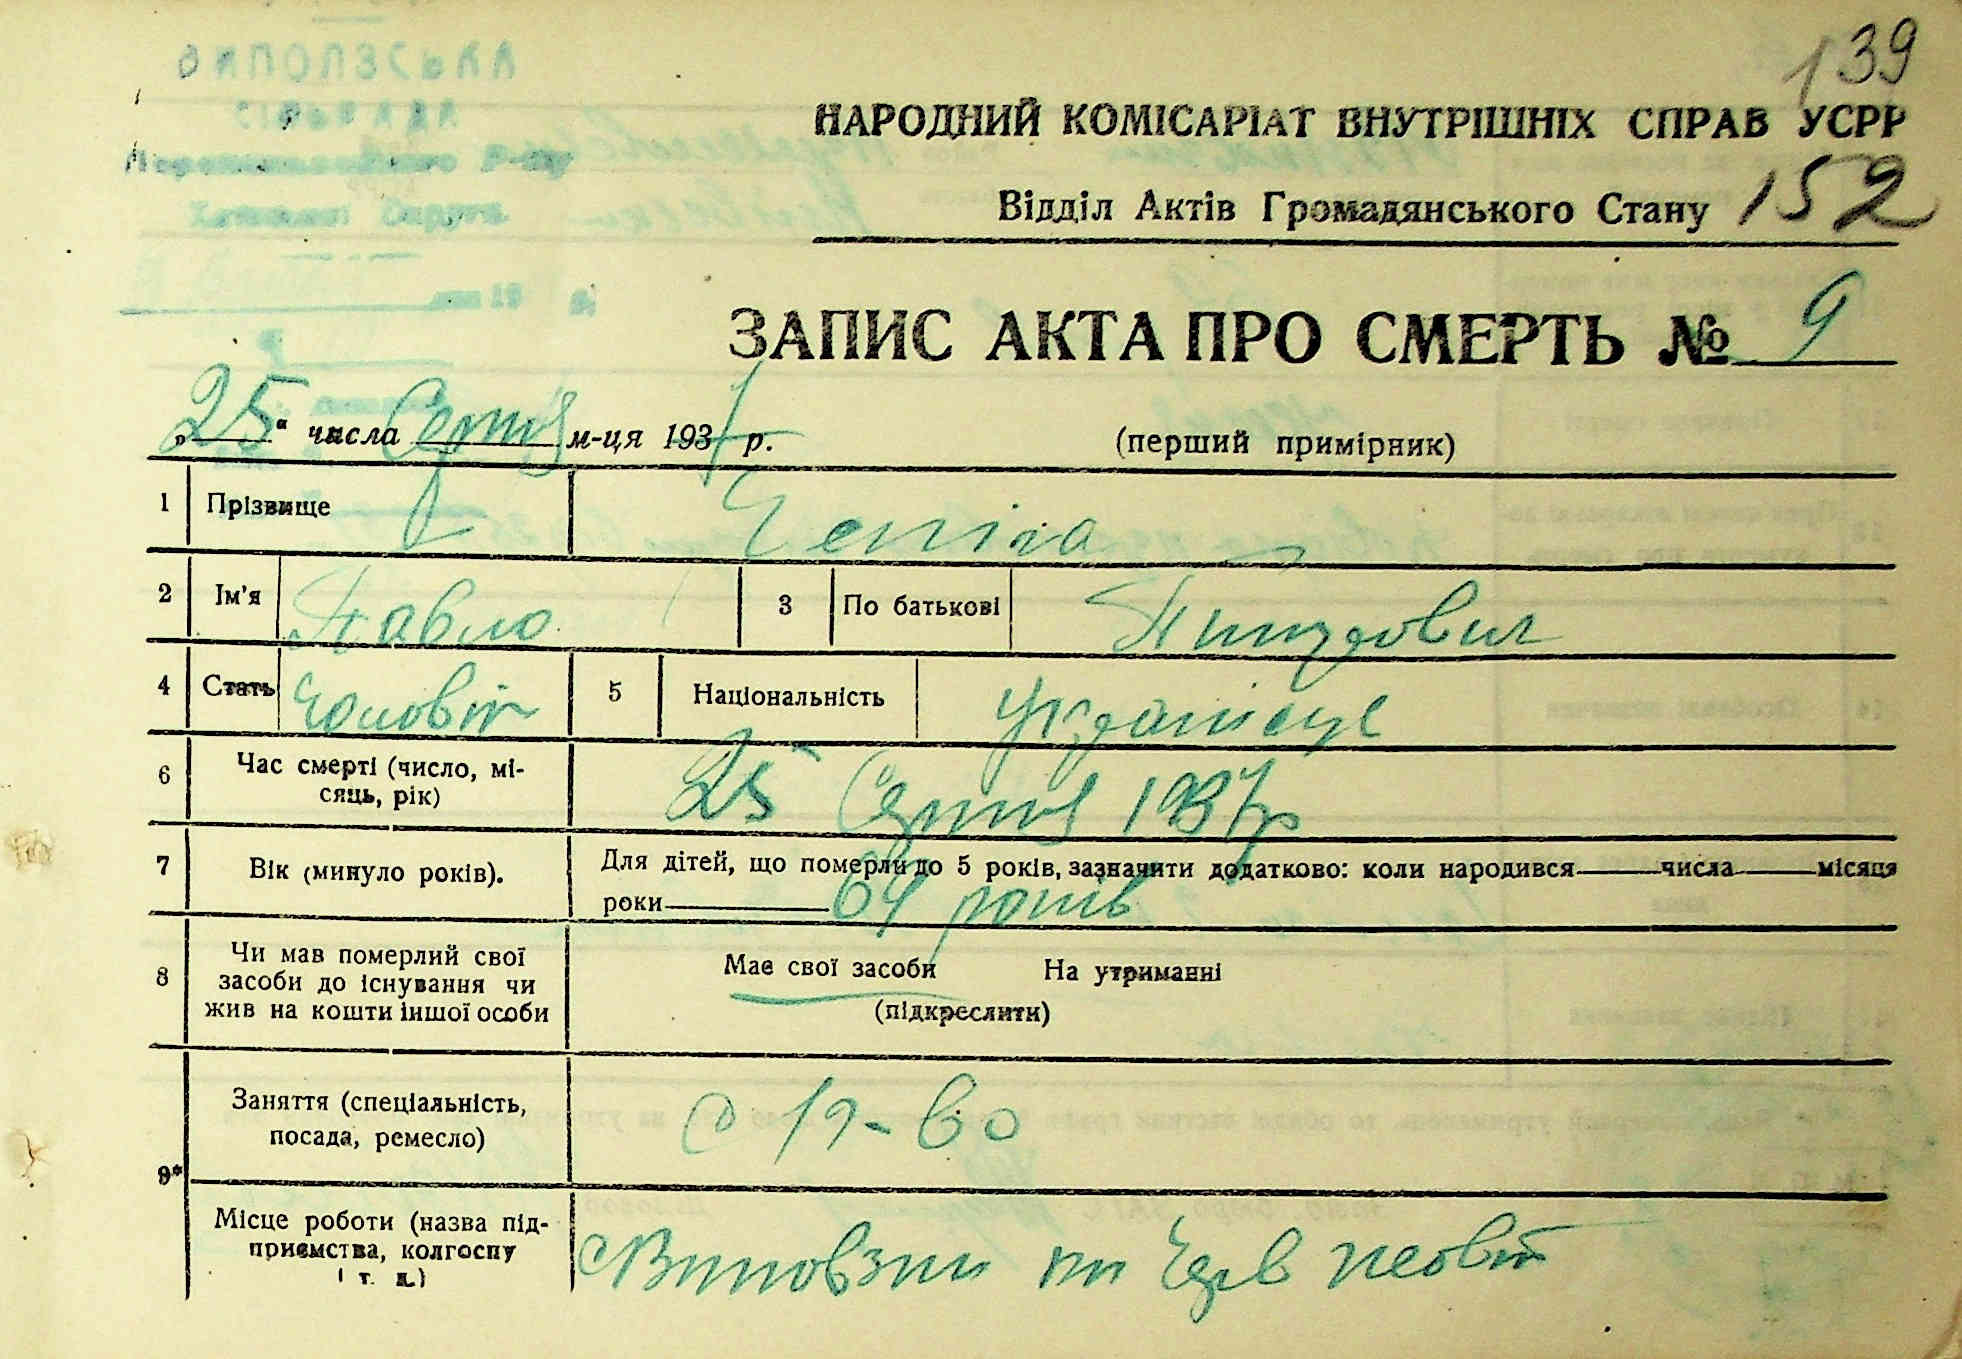 139
ВИПОЛЗСЬКА
СІЛЬРАДА
НАРОДНИЙ КОМІСАРІАТ ВНУТРІШНІХ СПРАВ УСРР
Відділ Актів Громадянського Стану 152
ЗАПИС АКТА ПРО СМЕРТЬ № 9
„25“ числа Серпня м-ця 1937 р.
(перший примірник)
1 Прізвище Чепіга
2 Ім'я Павло 3 По батькові
4 Стать Чоловіч 5 Національність Українець
6 Час смерті (число, мі-
сяць, рік) 25 Серпня 1937р
7 Вік (минуло років). Для дітей, що померли до 5 років, зазначити додатково: коли народився числа місяця
роки 64 років
8 Чи мав померлий свої
засоби до існування чи
жив на кошти іншої особи
Має свої засоби На утриманні
(підкреслити)
9* Заняття (спеціальність,
посада, ремесло)
Місце роботи (назва під-
приємства, колгоспу
і т. д.)